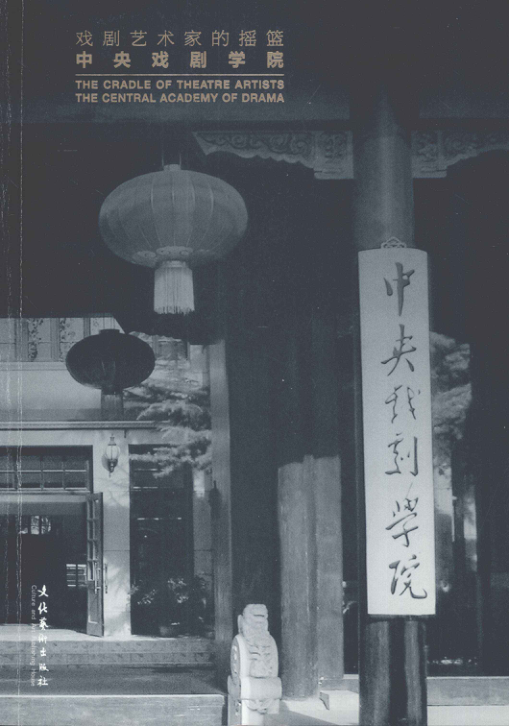 戏剧艺术家的摇篮
中央戏剧学院
THE CRADLE OF THEATRE ARTISTS
THE CENTRAL ACADEMY OF DRAMA
中央戏剧学院
文化艺术出版社
Culture and Art Publishing House